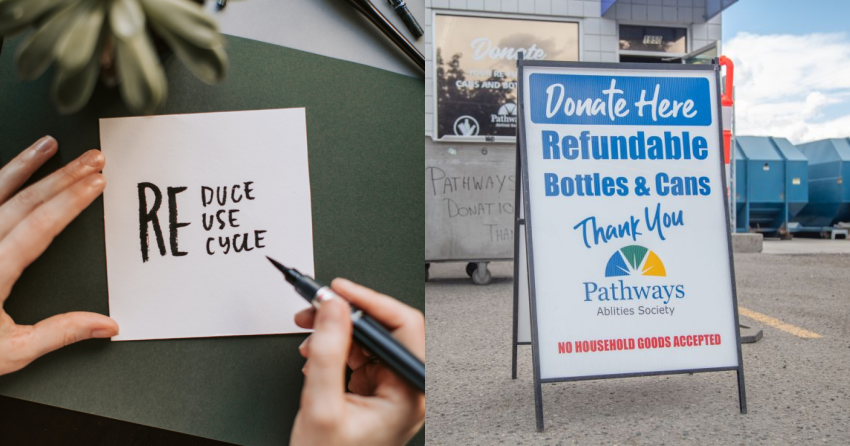 RE DUCE
USE
CYCLE
Donate
CANS AND
Pathways
PATHWAYS
DONATIO
THAN
Donate Here
Refundable
Bottles & Cans
Thank You
Pathways
Ablities Society
NO HOUSEHOLD GOODS ACCEPTED